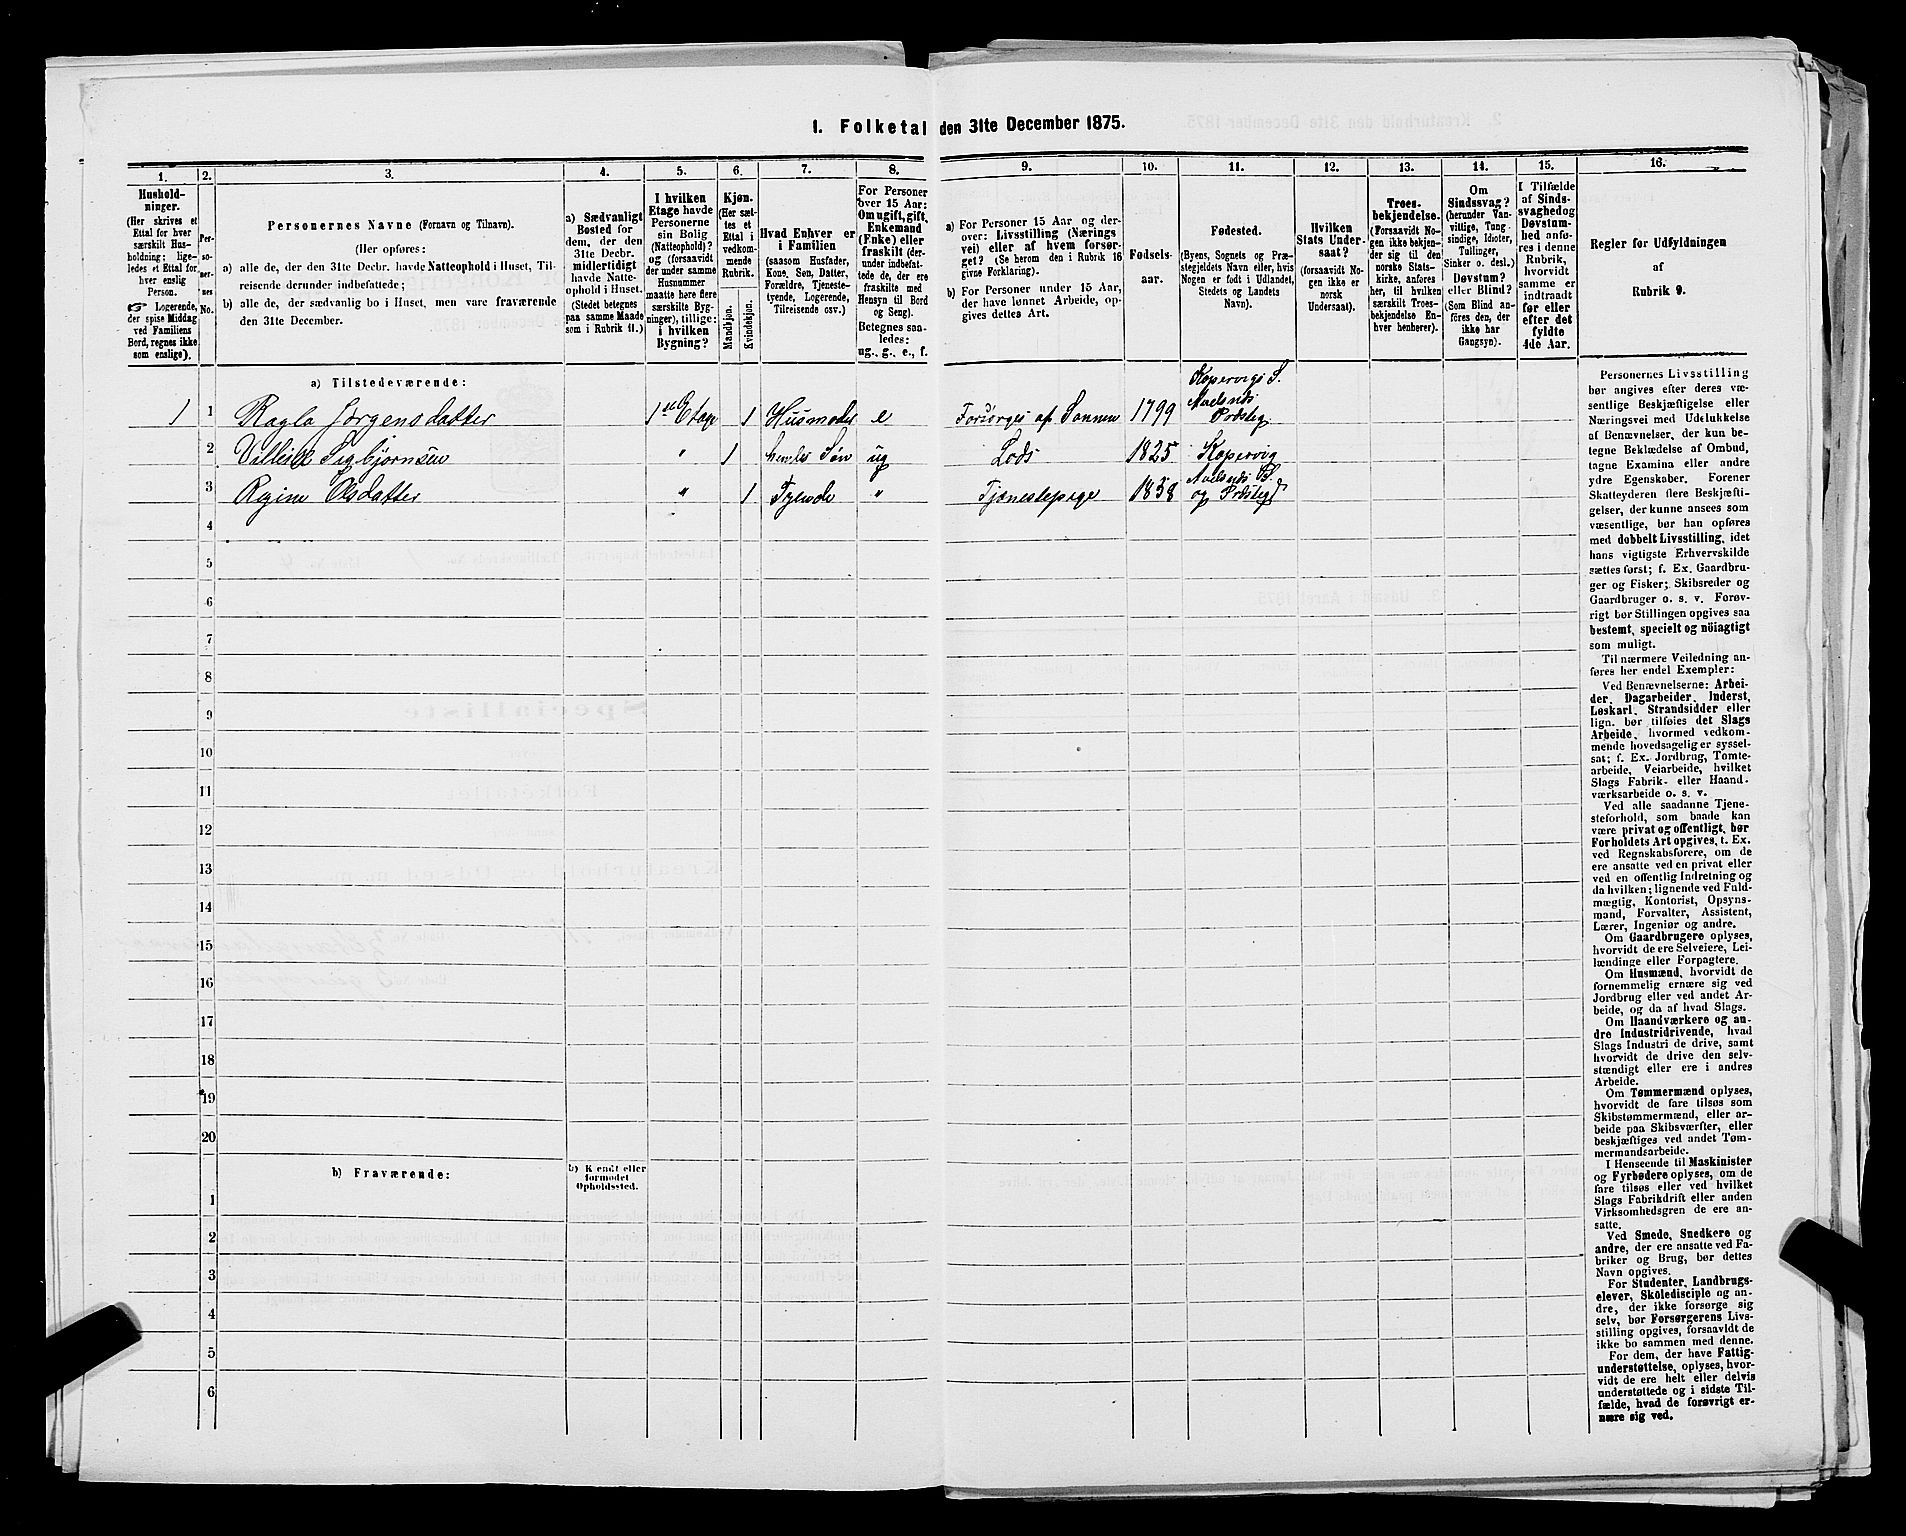 1. Folketal den 31te December 1875.
1.
2.
3.
4.
5.
6.
7.
8.
9.
10.
11.
12.
13.
14.
15.
16.
Hushold-
ninger.
(Her skrives et
Ettal for hver
særskilt Hus-
holdning; lige-
ledes et Ettal for
hver enslig
Person.
☞ Logerende,
der spise Middag
ved Familiens
Bord, regnes ikke
som enslige).
Per-
so-
ner-
nes
No.
Personernes Navne (Fornavn og Tilnavn).
(Her opføres:
a) alle de, der den 31te Decbr. havde Natteophold i Huset, Til-
reisende derunder indbefattede;
b) alle de, der sædvanlig bo i Huset, men vare fraværende
den 31te December.
a) Sædvanligt
Bosted for
dem, der den
31te Decbr.
midlertidigt
havde Natte-
ophold i Huset.
(Stedet betegnes
paa samme Maade
som i Rubrik 11.)
I hvilken
Etage havde
Personerne
sin Bolig
(Natteophold)?
og (forsaavidt
der under samme
Husnummer
maatte høre flere
særskilte Byg-
ninger), tillige:
i hvilken
Bygning?
Kjøn.
(Her sæt-
tes et
Ettal i
vedkom-
mende
Rubrik.
Mandkjøn.
Kvindekjøn.
Hvad Enhver er
i Familien
(saasom Husfader,
Kone, Søn, Datter,
Forældre, Tjeneste-
tyende, Logerende,
Tilreisende osv.)
For Personer
over 15 Aar:
Om ugift, gift,
Enkemand
(Enke) eller
fraskilt (der-
under indbefat-
tede de, der ere
fraskilte med
Hensyn til Bord
og Seng).
Betegnes saa-
ledes:
ug., g., e., f.
a) For Personer 15 Aar og der-
over: Livsstilling (Nærings
vei) eller af hvem forsør-
get? (Se herom den i Rubrik 16
givne Forklaring).
b) For Personer under 15 Aar,
der have lønnet Arbeide, op-
gives dettes Art.
Fødsels-
aar.
Fødested.
(Byens, Sognets og Præ-
stegjeldets Navn eller, hvis
Nogen er født i Udlandet,
Stedets og Landets
Navn).
Hvilken
Stats Under-
saat?
(forsaavidt No-
gen ikke er
norsk
Undersaat).
Troes-
bekjendelse.
(Forsaavidt No-
gen ikke bekjen-
der sig til den
norske Stats-
kirke, anføres
her, til hvilken
særskilt Troes-
bekjendelse En-
hver henhører).
Om
Sindssvag?
(herunder Van-
vittige, Tung-
sindige, Idioter,
Tullinger,
Sinker o. desl.)
Døvstum?
eller Blind?
(Som Blind an-
føres den, der
ikke har
Gangsyn).
I Tilfælde
af Sinds-
svaghed og
Døvstum-
hed anfø-
res i denne
Rubrik,
hvorvidt
samme er
indtraadt
før eller
efter det
fyldte
4de Aar.
Regler for Udfyldningen
af
Rubrik 9.
a) Tilstedeværende:
1 1 Ragla Jørgensdatter 1ste Etage 1 Husmoder e Forsørges af Sønnen 1799 Kopervigs S. Præsteg
2 Villiele Sigbjørnsen " 1 hendes Søn ug Lods 1825 Kopervig
3 Regine Olsdatter " 1 Tyende " Tjenestepige 1858 og Præstegd
4
5
6
7
8
9
10
11
12
13
14
15
16
17
18
19
20
b) Fraværende:
b) Kjendt eller
formodet
Opholdssted.
1
2
3
4
5
6
Personernes Livsstilling
bør angives efter deres væ-
sentlige Beskjæftigelse eller
Næringsvei med Udelukkelse
af Benævnelser, der kun be-
tegne Beklædelse af Ombud,
tagne Examina eller andre
ydre Egenskaber. Forener
Skatteyderen flere Beskjæfti-
gelser, der kunne ansees som
væsentlige, bør han opføres
med dobbelt Livsstilling, idet
hans vigtigste Erhvervskilde
sættes først; f. Ex. Gaardbru-
ger og Fisker; Skibsreder og
Gaardbruger o. s. v. Forøv-
rigt bør Stillingen opgives saa
bestemt, specielt og nöiagtigt
som muligt.
Til nærmere Veiledning an-
føres her endel Exempler:
Ved Benævnelserne: Arbei-
der, Dagarbeider, Inderst,
Løskarl, Strandsidder eller
lign. bør tilføies det Slags
Arbeide, hvormed vedkom-
mende hovedsagelig er syssel-
sat; f. Ex. Jordbrug, Tomte-
arbeide, Veiarbeide, hvilket
Slags Fabrik- eller Haand-
værksarbeide o. s. v.
Ved alle saadanne Tjene-
steforhold, som baade kan
være privat og offentligt, bør
Forholdets Art opgives, t. Ex.
ved Regnskabsførere, om de
ere ansatte ved en privat eller
ved en offentlig Indretning og
da hvilken; lignende ved Fuld-
mægtig, Kontorist, Opsyns-
mand, Forvalter, Assistent,
Lærer, Ingeniør og andre.
Om Gaardbrugere oplyses,
hvorvidt de ere Selveiere, Lei-
lændinge eller Forpagtere.
Om Husmænd, hvorvidt de
fornemmelig ernære sig ved
Jordbrug eller ved andet Ar-
beide, og da af hvad Slags.
Om Haandværkere og an-
dre Industridrivende, hvad
Slags Industri de drive, samt
hvorvidt de drive den selv-
stændigt eller ere i andres
Arbeide.
Om Tømmermænd oplyses,
hvorvidt de fare tilsøs som
Skibstømmermænd, eller ar-
beide paa Skibsværfter, eller
beskjæftiges ved andet Tøm-
mermandsarbeide.
I Henseende til Maskinister
og Fyrbødere oplyses, om de
fare tilsøs eller ved hvilket
Slags Fabrikdrift eller anden
Virksomhedsgren de ere an-
satte.
Ved Smede, Snedkere og
andre, der ere ansatte ved Fa-
briker og Brug, bør dettes
Navn opgives.
For Studenter, Landbrugs-
elever, Skoledisciple og an-
dre, der ikke forsørge sig
selv, bør Forsørgerens Livs-
stilling opgives, forsaavidt de
ikke bo sammen med denne.
For dem, der have Fattig-
understøttelse, oplyses, hvor-
vidt de ere helt eller delvis
understøttede og i sidste Til-
fælde, hvad de forøvrigt er-
nære sig ved.